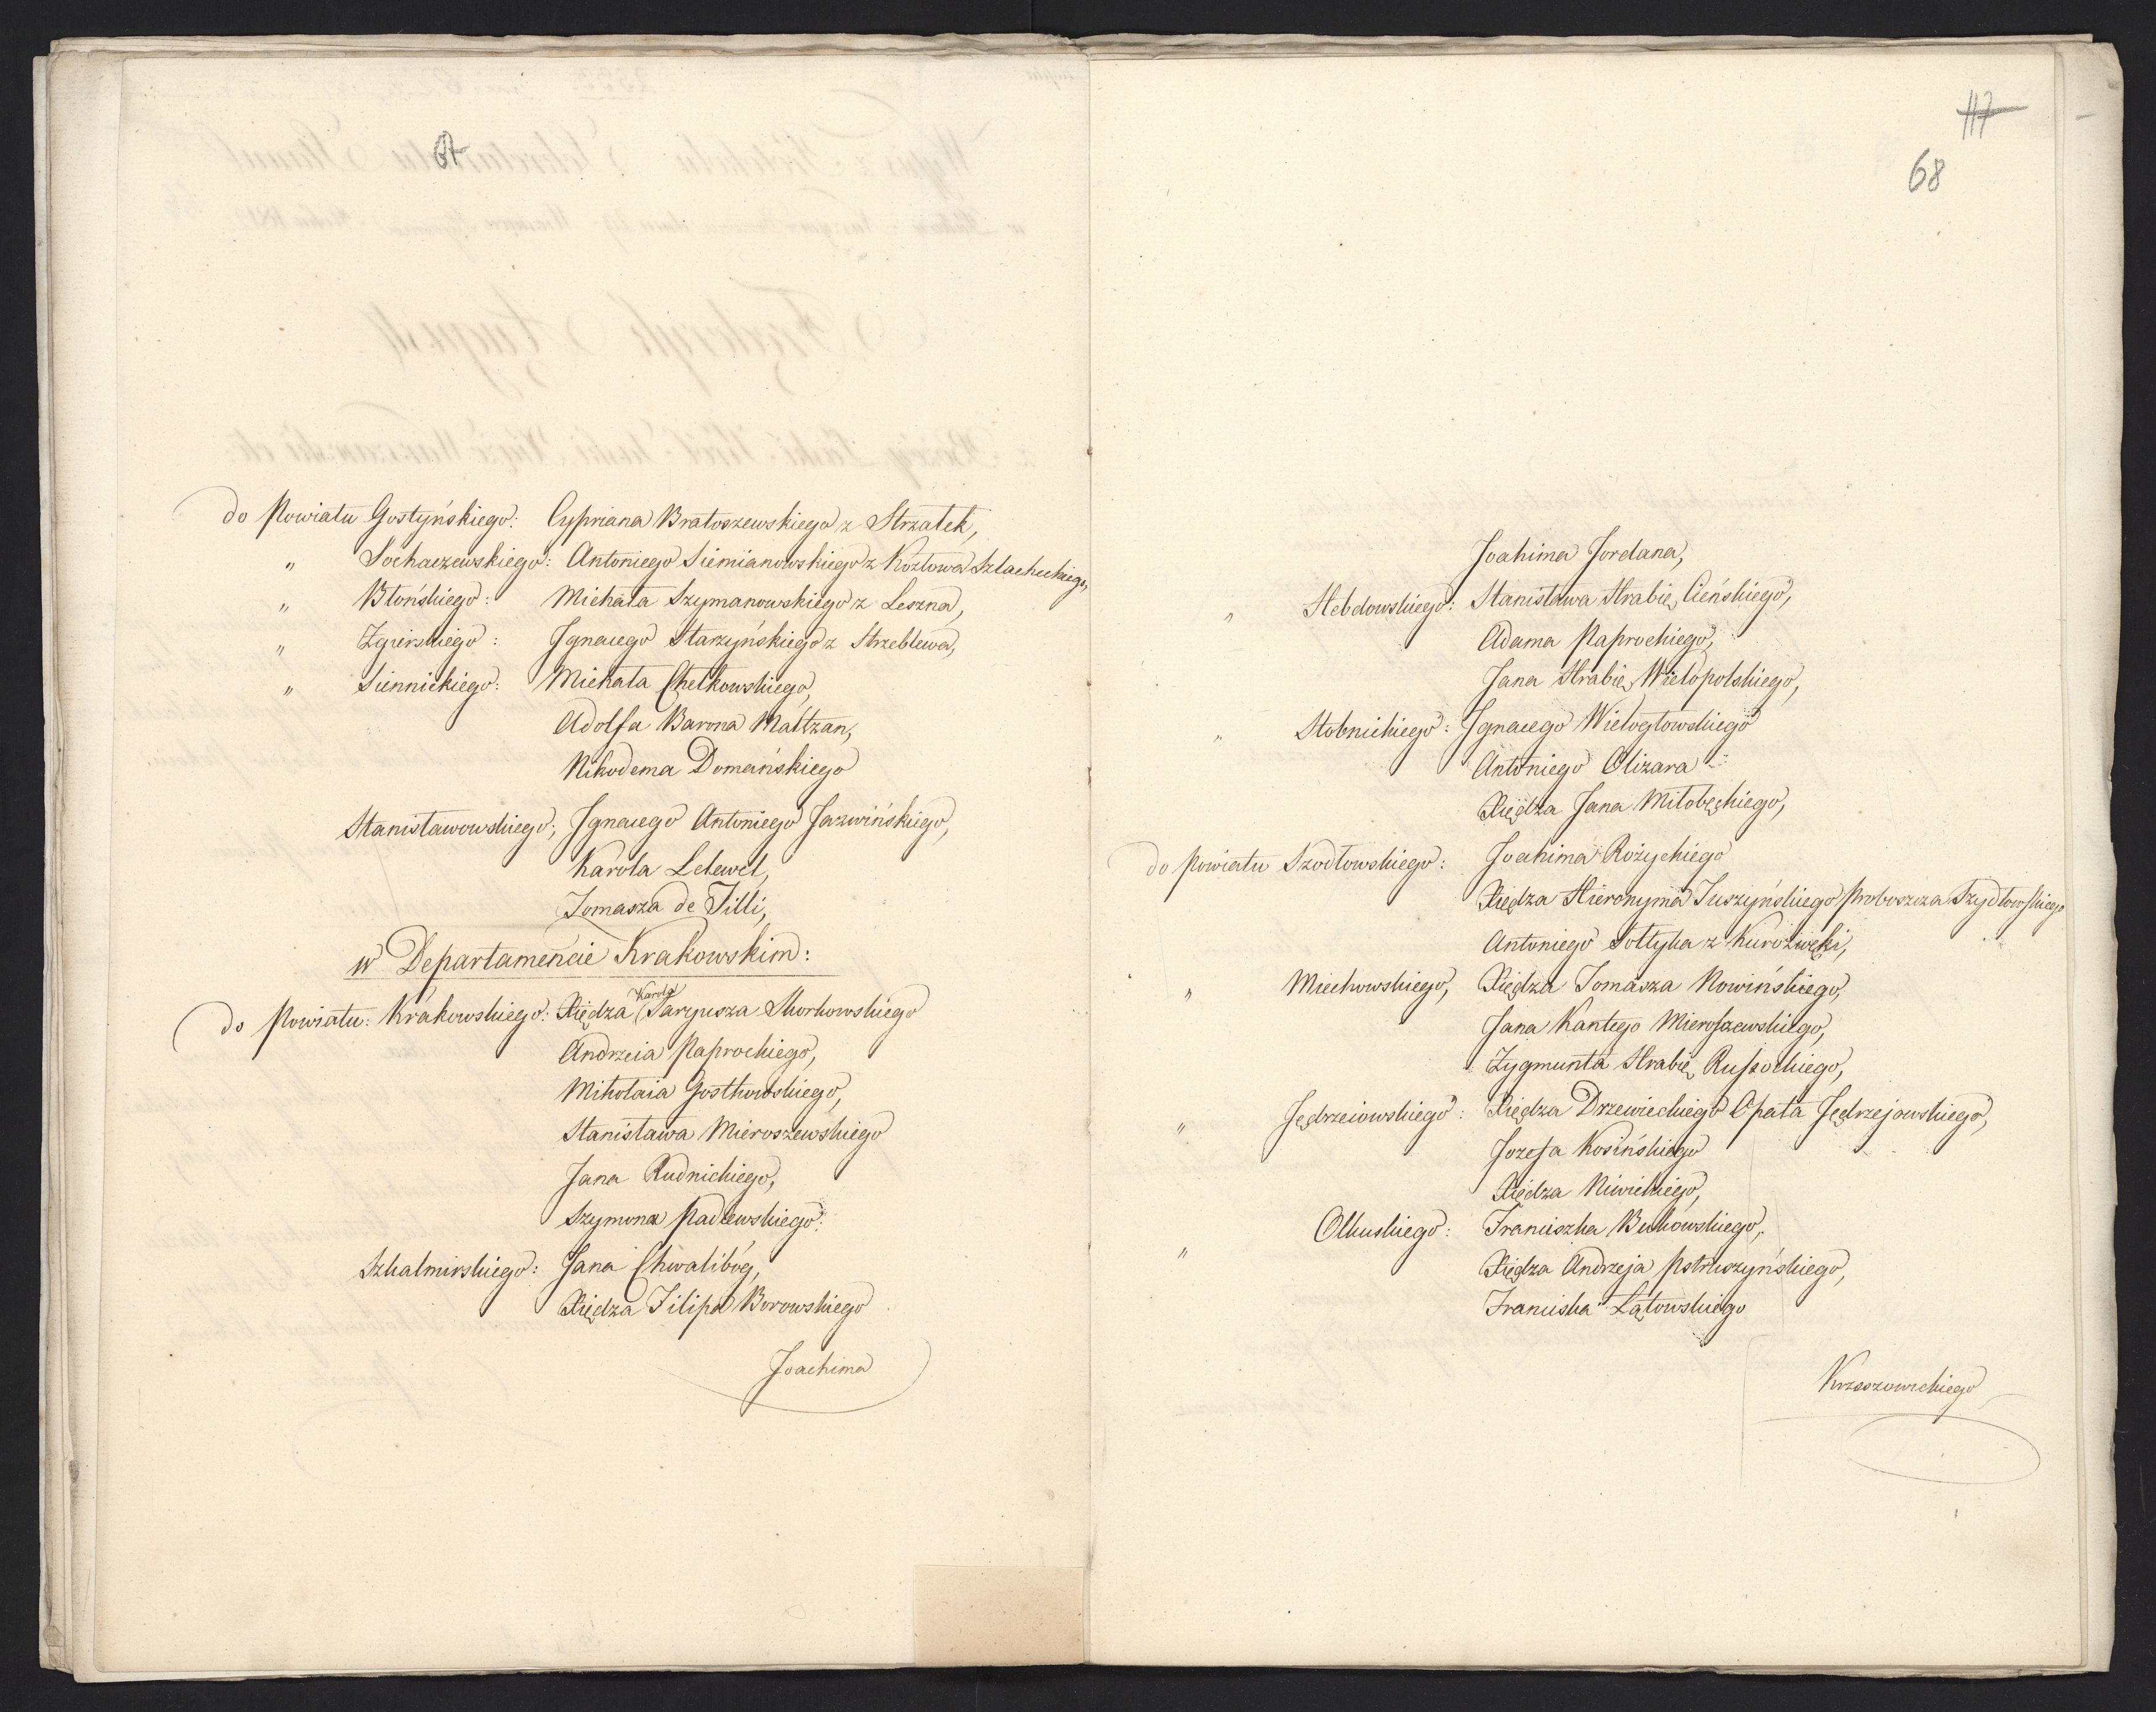 67
do Powiatu Gostyńskiego: Cypriana Bratoszewskiego z Strzałek,
" Sochaczewskiego: Antoniego Siemianowskiego z Kozłowa Szlacheckiego,
" Błońskiego: Michała Szymanowskiego z Leszna,
" Zgierskiego: Ignacego Starzyńskiego z Strzeblewa,
" Siennickiego: Michała Chełkowskiego,
Adolfa Barona Maltzan,
Nikodema Domańskiego
Stanisławowskiego; Ignacego Antoniego Jazwińskiego,
Karola Lelewel,
Tomasza de Tilli,
w Departamencie Krakowskim:
do Powiatu: Krakowskiego: Xiędza Karola Saryusza Skorkowskiego
Andrzeia Paprockiego,
Mikołaia Gostkowskiego,
Stanisława Mieroszewskiego
Jana Rudnickiego,
Szymona Padlewskiego.
Szkalmirskiego: Jana Chwalibóg,
Xiędza Filipa Borowskiego
Joachima
117
68
Joahima Jordana,
" Hebdowskiego: Stanisława Hrabię Cieńskiego,
Adama Paprockiego,
Jana Hrabię Wielopolskiego,
" Stobnickiego: Ignacego Wielogłowskiego
Antoniego Olizara
Xiędza Jana Miłobęckiego,
do Powiatu Szodłowskiego: Joachima Różyckiego
Xiędza Hieronyma Juszyńskiego Proboszcza Szydłowskiego
Antoniego Sołtyka z Kurozwęki,
" Miechowskiego, Xiędza Tomasza Nowińskiego,
Jana Kantego Mieroszewskiego,
Zygmunta Hrabię Russockiego,
" Jędrzeiowskiego: Xiędza Drzewieckiego Opata Jędrzejowskiego,
Jozefa Kosińskiego
Xiędza Niwickiego,
" Olkuskiego: Franciszka Bukowskiego,
Xiędza Andrzeja Pstruszyńskiego,
Franciska Łątowskiego
Krzeszowickiego